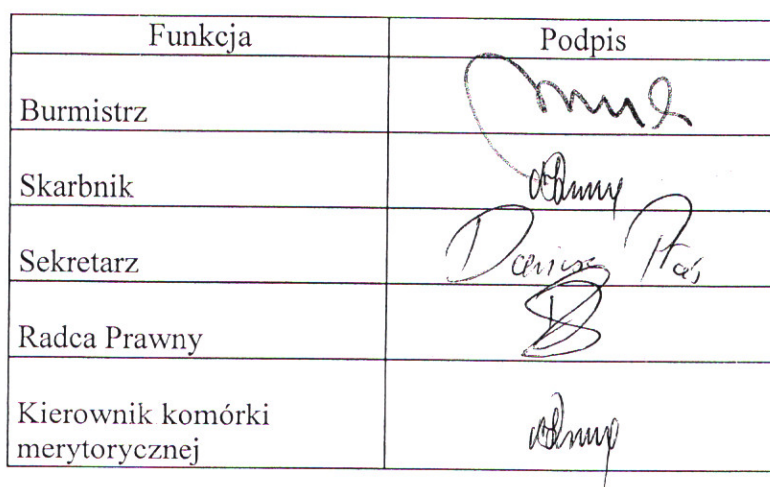 Funkcja Podpis
Burmistrz
Skarbnik
Sekretarz Dariusz Ptaś
Radca Prawny
Kierownik komórki
merytorycznej